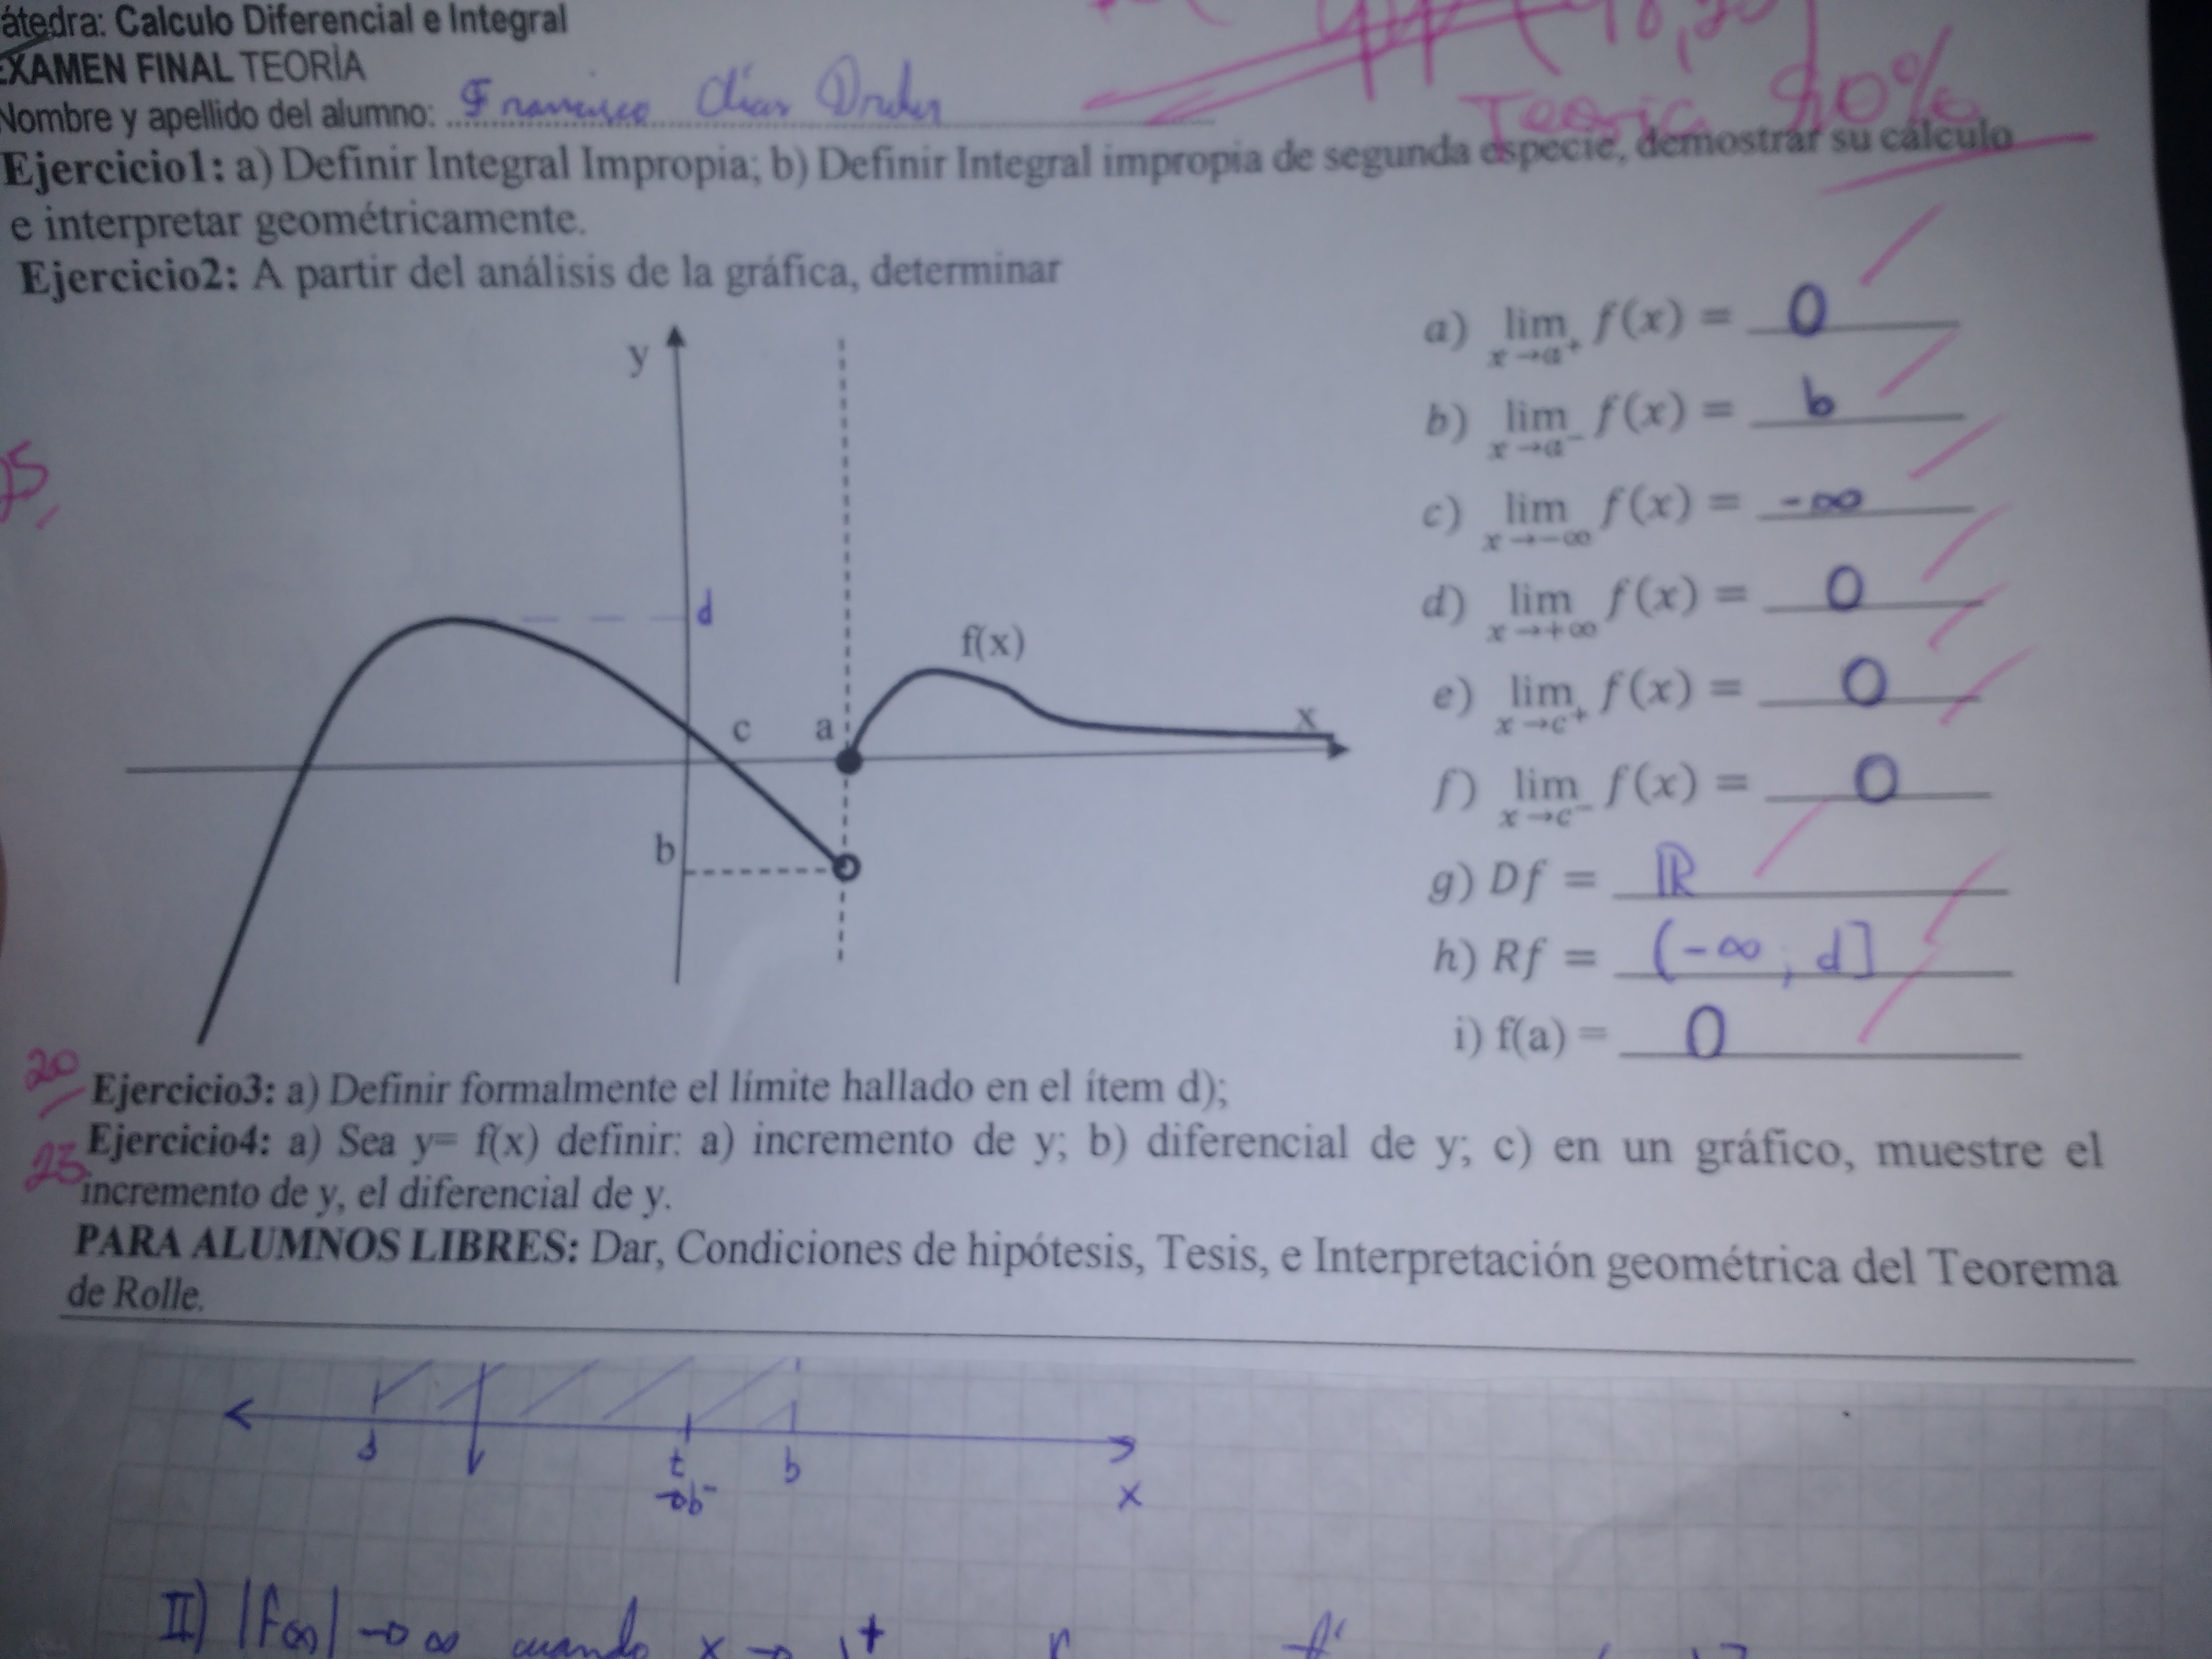 átedra: Calculo Diferencial e Integral
EXAMEN FINAL TEORÌA
Nombre y apellido del alumno: Francisco
Teoría 90%
Ejercicio1: a) Definir Integral Impropia; b) Definir Integral impropia de segunda especie, demostrar su cálculo
e interpretar geométricamente.
Ejercicio2: A partir del análisis de la gráfica, determinar
y
d
f(x)
c
a
x
b
a) lim x→a⁺ f(x) = 0
b) lim x→a⁻ f(x) = b
c) lim x→-∞ f(x) = -∞
d) lim x→+∞ f(x) = 0
e) lim x→c⁺ f(x) = 0
f) lim x→c⁻ f(x) = 0
g) Df = ℝ
h) Rf = (-∞; d]
i) f(a) = 0
20
Ejercicio3: a) Definir formalmente el límite hallado en el ítem d);
23
Ejercicio4: a) Sea y= f(x) definir: a) incremento de y; b) diferencial de y; c) en un gráfico, muestre el
incremento de y, el diferencial de y.
PARA ALUMNOS LIBRES: Dar, Condiciones de hipótesis, Tesis, e Interpretación geométrica del Teorema
de Rolle.
t b
→b⁻
x
II) |f(x)| → ∞ cuando x →